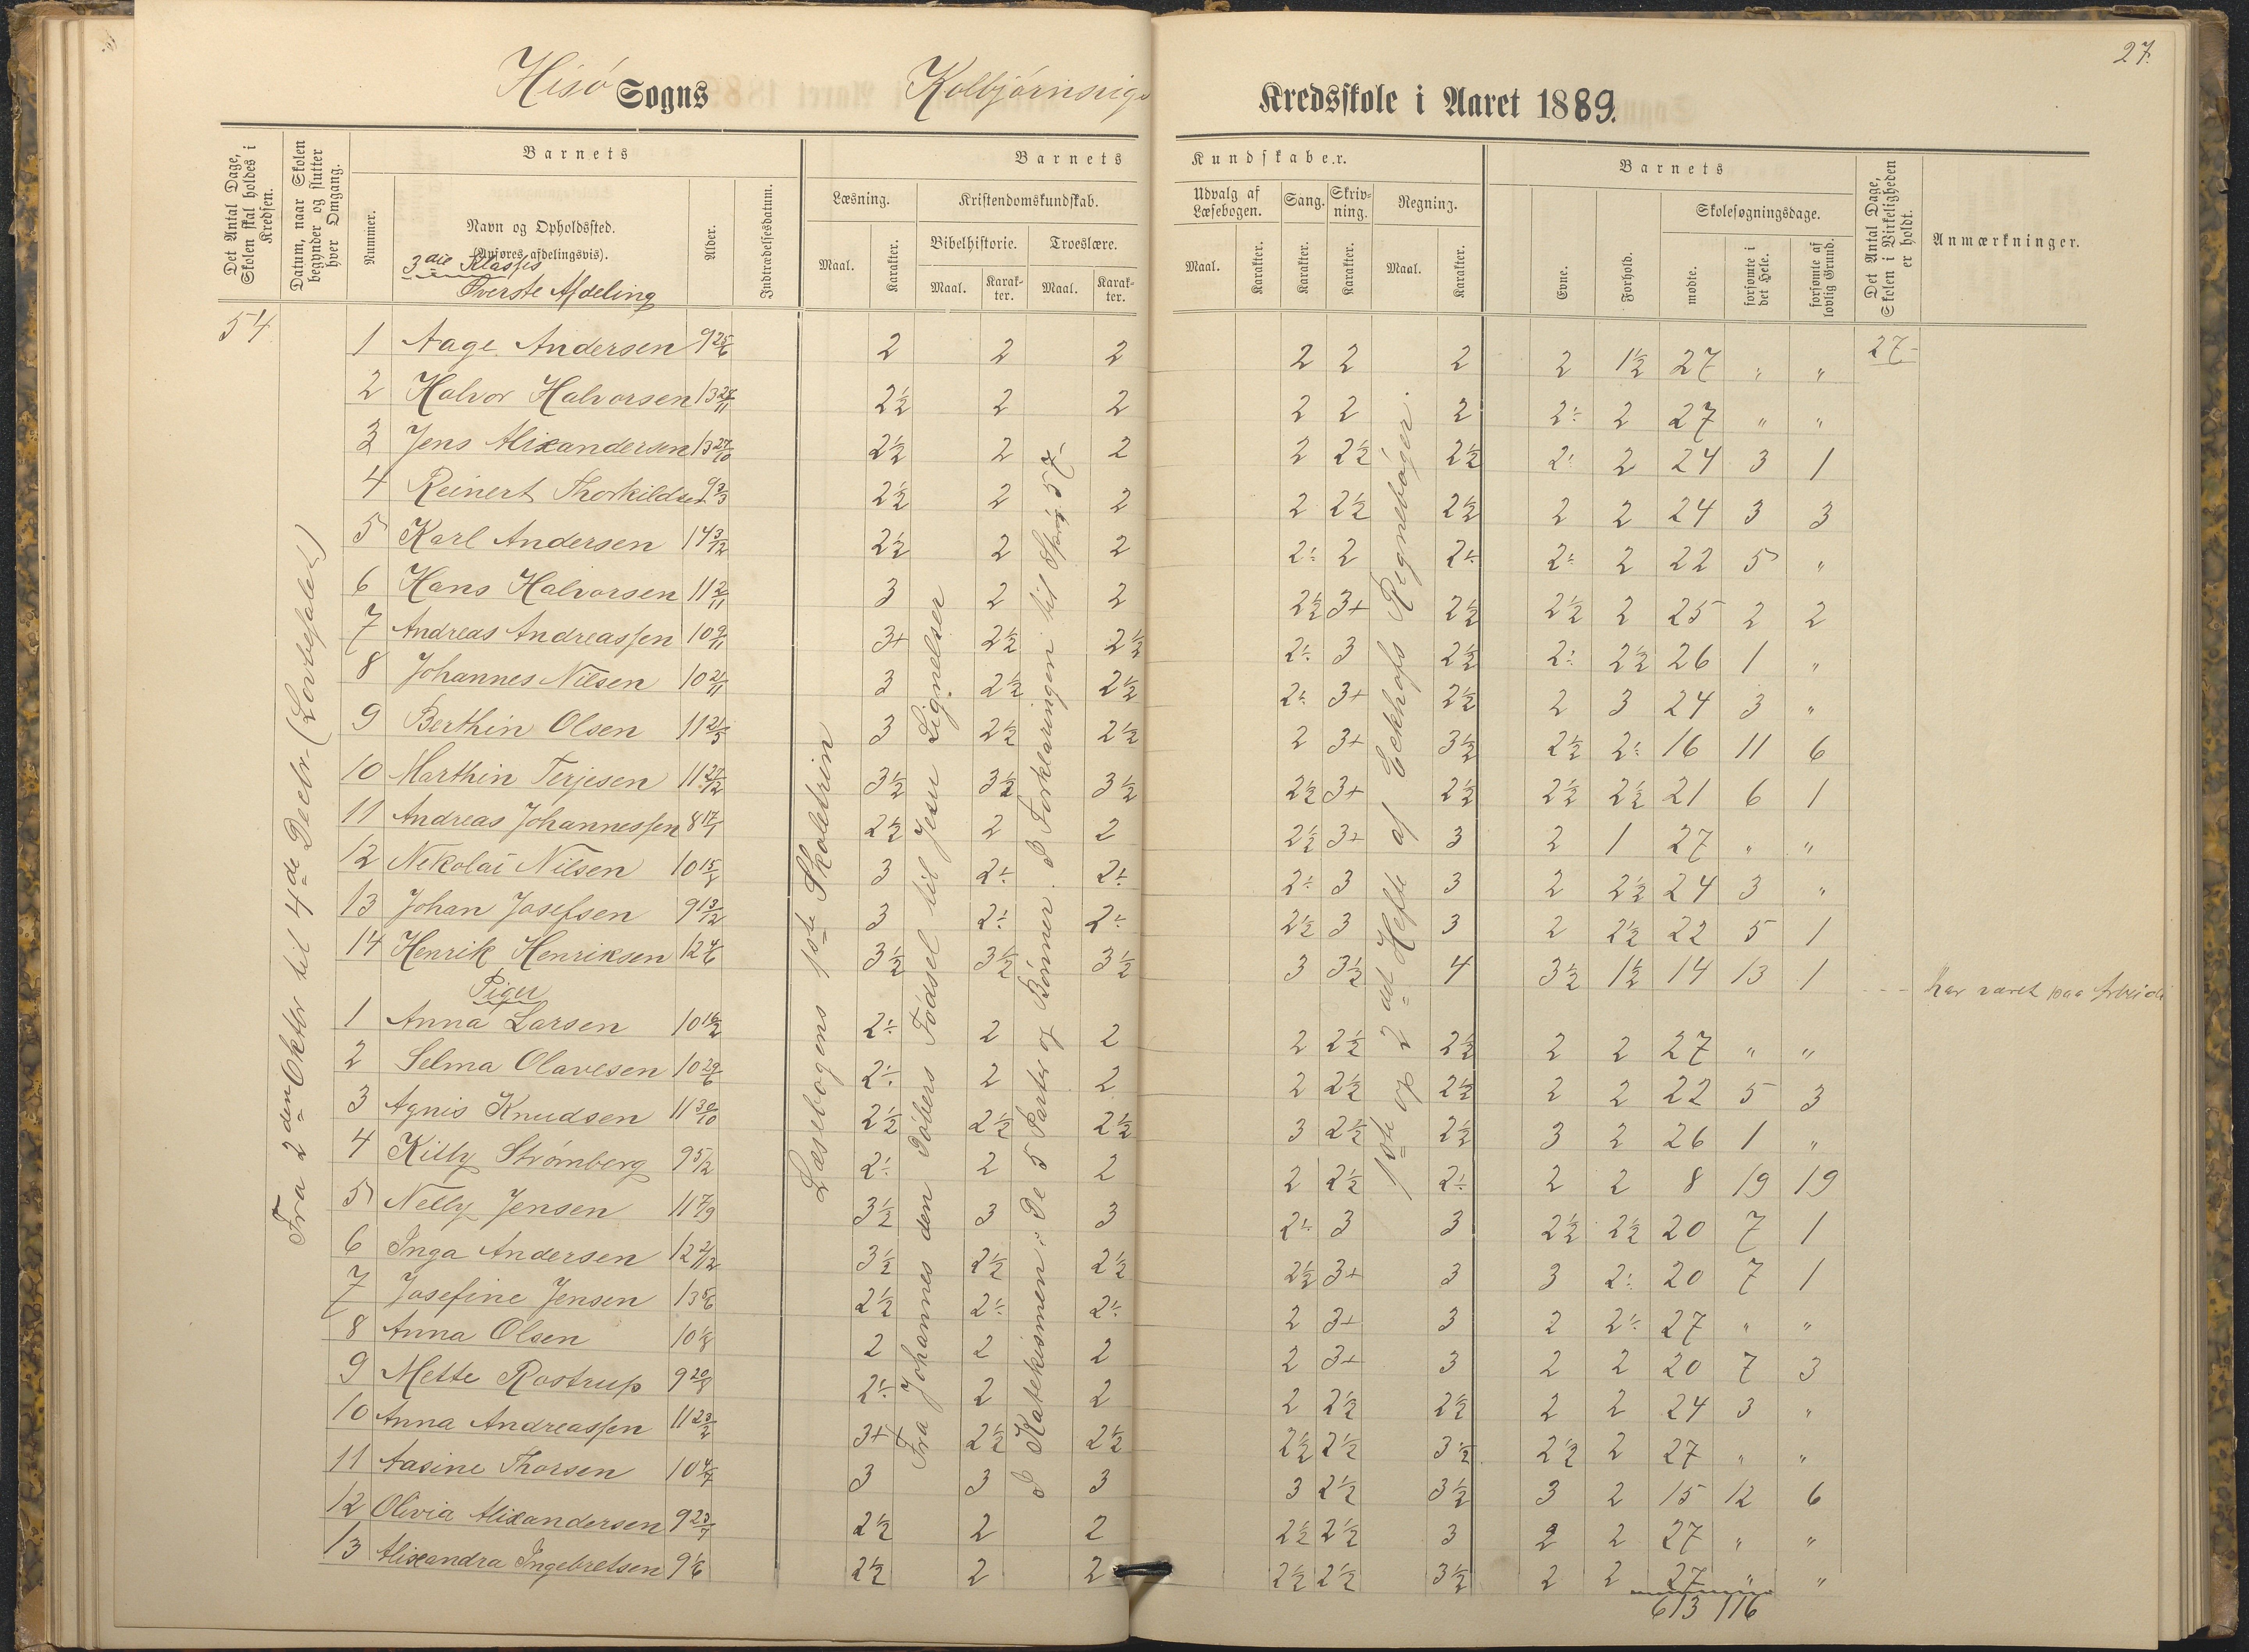 27.
Hisö Sogns Kolbjörnsvigs Kredsskole i Aaret 1889.
Det Antal Dage, Skolen skal holdes i Kredsen.
Datum, naar Skolen begynder og slutter hver Omgang.
Barnets
Nummer.
Navn og Opholdssted.
(Anføres afdelingsvis).
3die Klasses
Överste Afdeling
Alder.
Indtrædelsesdatum.
Barnets Kundskaber.
Læsning.
Maal.
Karakter.
Kristendomskundskab.
Bibelhistorie.
Maal.
Karakter.
Troeslære.
Maal.
Karakter.
Udvalg af Læsebogen.
Maal.
Karakter.
Sang.
Karakter.
Skrivning.
Karakter.
Regning.
Maal.
Karakter.
Barnets
Evne.
Forhold.
Skolesøgningsdage.
mødte.
forsømte i det Hele.
forsømte af lovlig Grund.
Det Antal Dage, Skolen i Virkeligheden er holdt.
Anmærkninger.
54
Fra 2den Oktbr til 4de Decbr. (Lovbefalet)
Læsebogens 1ste Skoletrin
Fra Johannes den Döbers Födsel til Jesu Lignelser
I Katekismen: De 5 Parter og Bönner. I Forklaringen til Spörg. 57
1ste og 2det Hefte af Eckhofs Regnebøger.
1 Aage Andersen 9 25/6 2 2 2 2 2 2 2 1½ 27 " " 27
2 Halvor Halvorsen 13 28/11 2½ 2 2 2 2 2 2÷ 2 27 " "
3 Jens Alixandersen 13 27/10 2½ 2 2 2 2½ 2½ 2÷ 2 24 3 1
4 Reinert Thorkildsen 9 3/3 2½ 2 2 2 2½ 2½ 2 2 24 3 3
5 Karl Andersen 14 3/12 2½ 2 2 2÷ 2 2÷ 2÷ 2 22 5 "
6 Hans Halvorsen 11 2/11 3 2 2 2½ 3+ 2½ 2½ 2 25 2 2
7 Andreas Andreassen 10 9/11 3+ 2½ 2½ 2÷ 3 2½ 2÷ 2½ 26 1 "
8 Johannes Nilsen 10 21/11 3 2½ 2½ 2÷ 3+ 2½ 2 3 24 3 "
9 Berthin Olsen 11 21/5 3 2½ 2½ 2 3+ 3½ 2½ 2÷ 16 11 6
10 Marthin Terjesen 11 27/12 3½ 3½ 3½ 2½ 3+ 2½ 2½ 2½ 21 6 1
11 Andreas Johannessen 8 17/1 2½ 2 2 2½ 3+ 3 2 1 27 " "
12 Nekolai Nilsen 10 15/8 3 2÷ 2÷ 2÷ 3 3 2 2½ 24 3 "
13 Johan Josefsen 9 13/12 3 2÷ 2÷ 2½ 3 3 2 2½ 22 5 1
14 Henrik Henriksen 12 4/6 3½ 3½ 3½ 3 3½ 4 3½ 1½ 14 13 1 har været paa Arbeide
Piger
1 Anna Larsen 10 16/2 2÷ 2 2 2 2½ 2½ 2 2 27 " "
2 Selma Olavesen 10 29/6 2÷ 2 2 2 2½ 2½ 2 2 22 5 3
3 Agnis Knudsen 11 30/10 2½ 2½ 2½ 3 2½ 2½ 3 2 26 1 "
4 Killy Strömberg 9 5/2 2÷ 2 2 2 2½ 2÷ 2 2 8 19 19
5 Nelly Jensen 11 7/9 3½ 3 3 2÷ 3 3 2½ 2½ 20 7 1
6 Inga Andersen 12 2/12 3½ 2½ 2½ 2½ 3+ 3 3 2÷ 20 7 1
7 Josefine Jensen 13 5/6 2½ 2÷ 2÷ 2 3+ 3 2 2÷ 27 " "
8 Anna Olsen 10 1/8 2 2 2 2 3+ 3 2 2 20 7 3
9 Mette Rostrup 9 20/8 2÷ 2 2 2 2½ 2½ 2 2 24 3 "
10 Anna Andreassen 11 23/2 3+ 2½ 2½ 2½ 2½ 3½ 2½ 2 27 " "
11 Aasine Thorsen 10 4/7 3 3 3 3 2½ 3½ 3 2 15 12 6
12 Olivia Alixandersen 9 23/7 2½ 2 2 2½ 2½ 3 2 2 27 " "
13 Alixandra Ingebretsen 9 1/6 2½ 2 2 2½ 2½ 3½ 2 2 27 " "
613 116